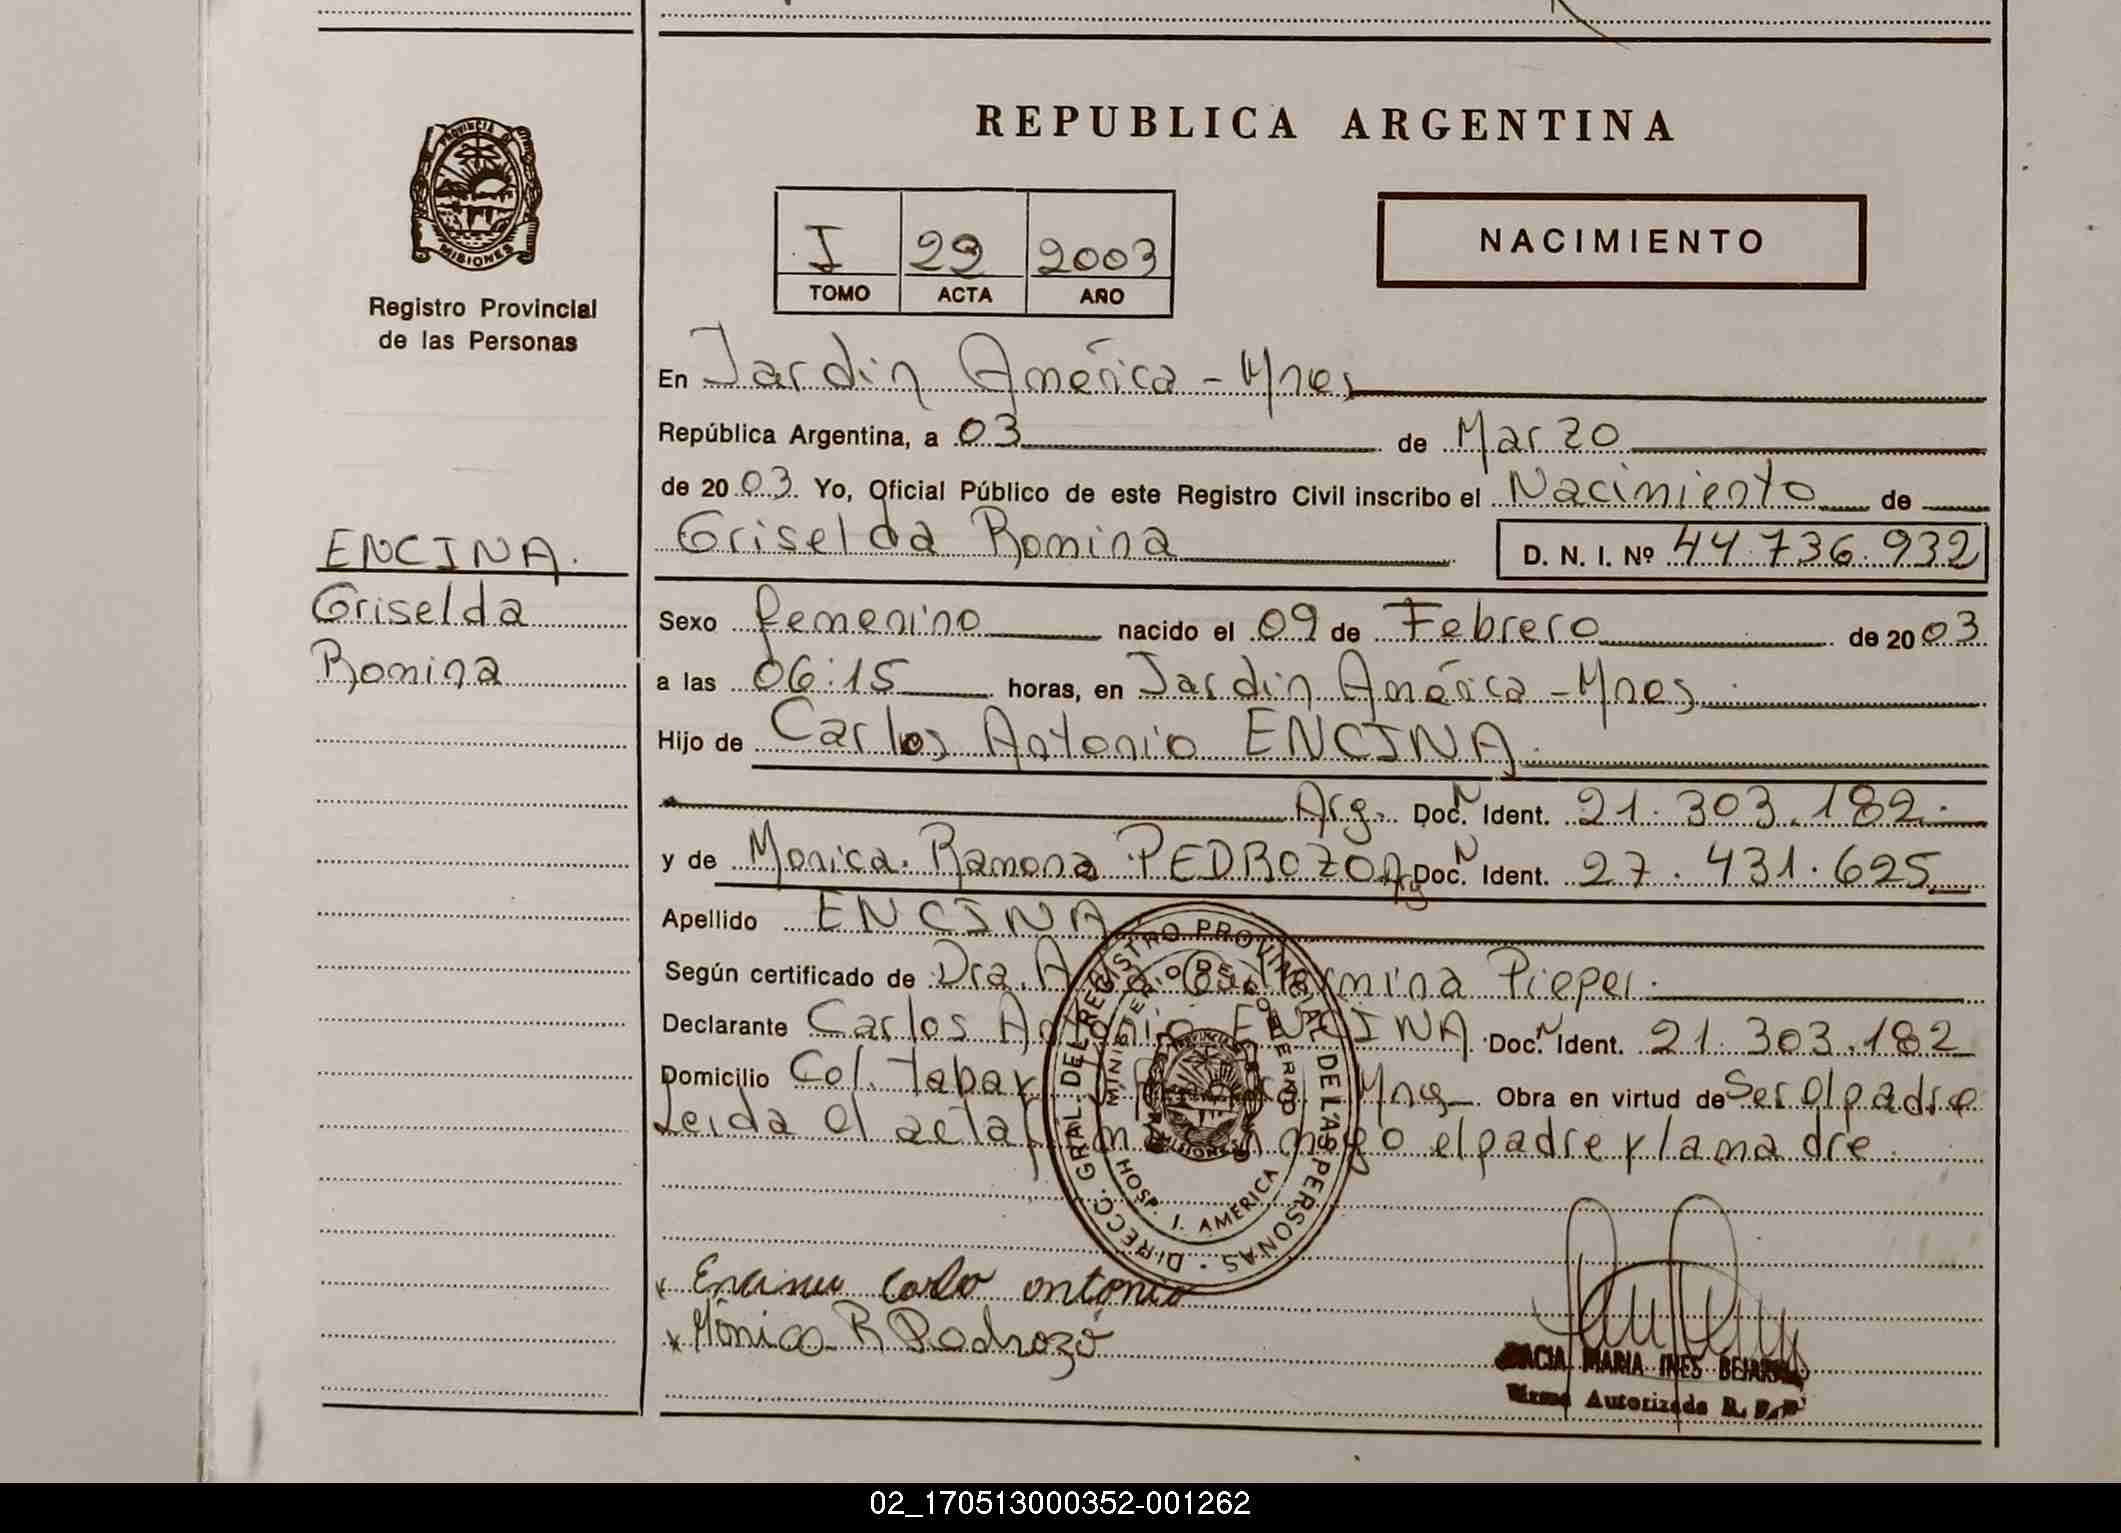 REPUBLICA ARGENTINA
PROVINCIA DE MISIONES
Registro Provincial
de las Personas
I 22 2003
TOMO ACTA AÑO
NACIMIENTO
En Jardin América - Mnes
República Argentina, a 03 de Marzo
de 2003 Yo, Oficial Público de este Registro Civil inscribo el Nacimiento de
Griselda Romina D. N. I. Nº 44.736.932
ENCINA.
Griselda
Romina
Sexo femenino nacido el 09 de Febrero de 2003
a las 06:15 horas, en Jardin América - Mnes.
Hijo de Carlos Antonio ENCINA.
Arg. Doc. N Ident. 21.303.182.
y de Monica Ramona PEDROZO Arg Doc. N Ident. 27.431.625
Apellido ENCINA
Según certificado de Dra. Pieper.
Declarante Carlos Antonio ENCINA. Doc. N Ident. 21.303.182
Domicilio Col. Mnes Obra en virtud de Ser el padre
Leida el acta el padre y la madre
DIRECC. GRAL. DEL REGISTRO PROVINCIAL DE LAS PERSONAS
MINISTERIO DE GOBIERNO
PROVINCIA MISIONES
HOSP. J. AMERICA
x Encina Carlo antonio
x Mónica R Pedrozo
MARIA INES
Firma Autorizada R. P. P.
02_170513000352-001262